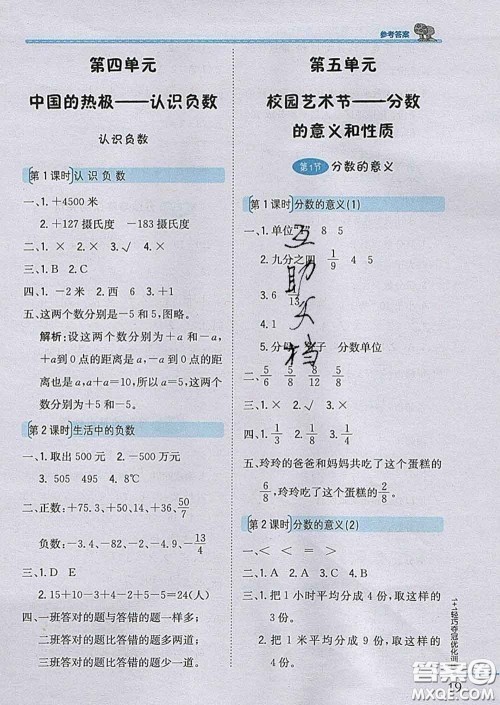 参考答案
第四单元
中国的热极——认识负数
认识负数
第1课时 认识负数
一、1. +4500米
2. +127摄氏度 -183摄氏度
二、1. × 2. × 3. √ 4. ×
三、1. B 2. C
四、1. -2米 2. 西 6 3. +1
五、这两个数分别是-5和+5,图略。
解析:设这两个数分别为+a和-a,
+a到0点的距离是a,-a到0点的
距离也是a,所以a=5,这两个
数分别为+5和-5。
第2课时 生活中的负数
一、1. 取出500元 2. -500万元
3. 505 495 4. 8 -8
二、正数:+75.3,+10,+36,50/7
负数:-3.4,-30,-2,-8.9,-13/4
三、1. A
2. 15+10-3+4-2+5-5=24(人)
四、一班答对的题与答错的题一样多;
二班答对的题比答错的题多两道;
三班答对的题比答错的题少一道。
第五单元
校园艺术节——分数
的意义和性质
第1节 分数的意义
第1课时 分数的意义(1)
一、1. 单位“ ” 8 5
2. 九分之四 1/9 4 5
3. 6 1/13
4. 1
5. 分 子 分数单位
二、5/6 5/8 5/8
三、1. × 2. √ 3. × 4. ×
四、1. 1/8 2. 1/4 3. 1/8
五、玲玲的爸爸和妈妈共吃了这个蛋糕的
2/8,玲玲吃了这个蛋糕的1/8。
第2课时 分数的意义(2)
一、< < = >
二、1. C 2. A 3. C
三、1. 把1小时平均分成4份,取其中的
3份。
2. 把1米平均分成9份,取其中的
4份。
互
助
文
档
1+1轻巧夺冠优化训
答案圈
MXQE.COM
19